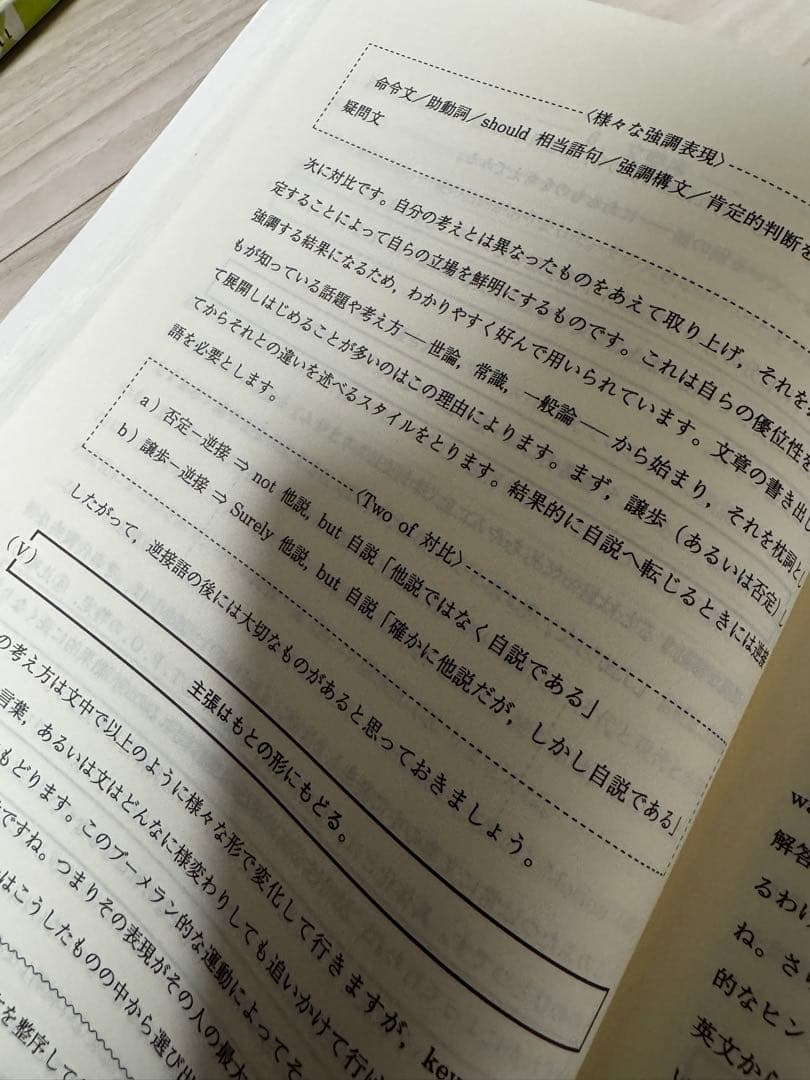 〈様々な強調表現〉
命令文／助動詞／should 相当語句／強調構文／肯定的判断を
疑問文
次に対比です。自分の考えとは異なったものをあえて取り上げ，それを
定することによって自らの立場を鮮明にするものです。これは自らの優位性を
強調する結果になるため，わかりやすく好んで用いられています。文章の書き出し
もが知っている話題や考え方――世論，常識，一般論――から始まり，それを枕詞と
て展開しはじめることが多いのはこの理由によります。まず，譲歩（あるいは否定）し
てからそれとの違いを述べるスタイルをとります。結果的に自説へ転じるときには逆接
語を必要とします。
〈Two of 対比〉
a）否定－逆接 ⇒ not 他説, but 自説「他説ではなく自説である」
b）譲歩－逆接 ⇒ Surely 他説, but 自説「確かに他説だが，しかし自説である」
したがって，逆接語の後には大切なものがあると思っておきましょう。
(V)
主張はもとの形にもどる。
の考え方は文中で以上のように様々な形で変化して行きますが，key
言葉，あるいは文はどんなに様変わりしても追いかけて行け
もどります。このブーメラン的な運動によってそ
ですね。つまりその表現がその人の最大
はこうしたものの中から選び出
を整序して
解答
るわけ
ね。さ
的なヒン
英文か